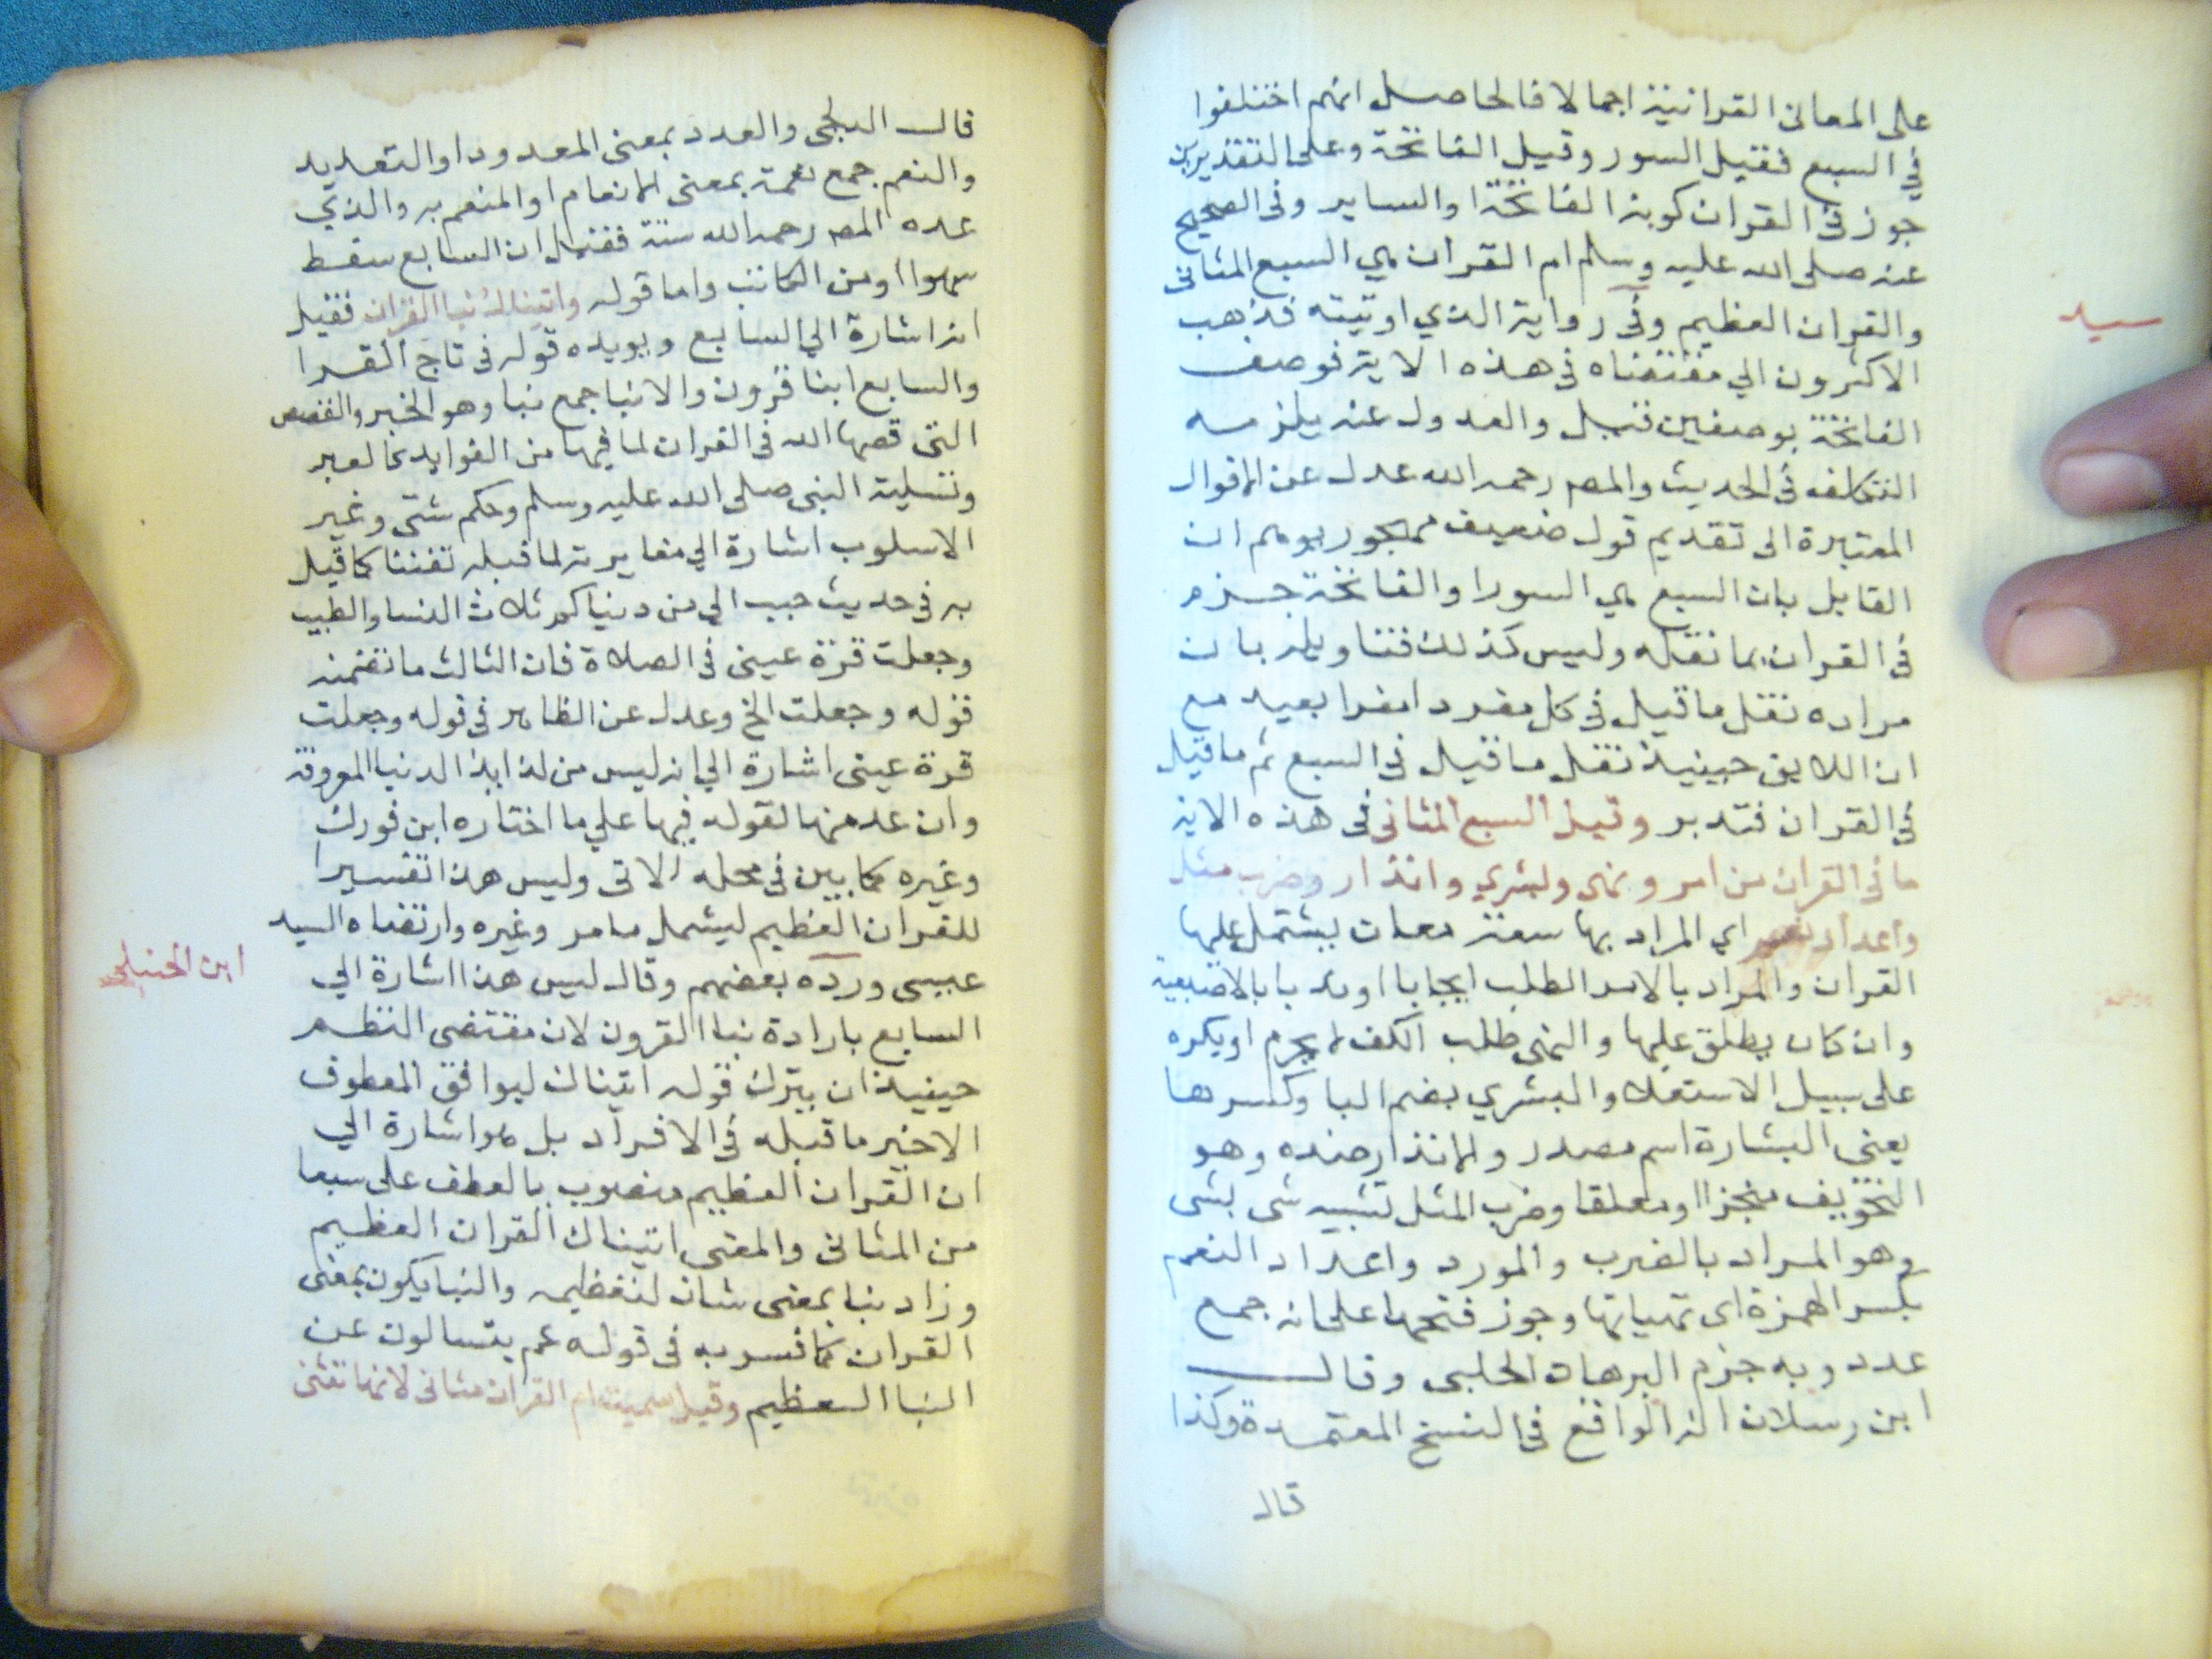 على المعانى القرانية اجمالا فالحاصل انهم اختلفوا
في السبع فقيل السور وقيل الفاتحة وعلى التقديرين
جوز فى القران كونه الفاتحة او الساير وفى الصحيح
عنه صلى الله عليه وسلم ام القران هي السبع المثانى
والقران العظيم وفى رواية الذي اوتيته فذهب
سيد
الاكثرون الي مقتضاه فى هذه الاية فوصف
الفاتحة بوصفين قبل والعدول عنه يلزمه
التكلف فى الحديث والمصـ رحمه الله عدل عن الاقوال
المعتبرة الى تقديم قول ضعيف مهجور يوهم ان
القايل بان السبع هي السور او الفاتحة جزم
فى القران بما نقله وليس كذلك فتاويله بان
مراده نقل ما قيل فى كل مفرد امفرا بعيد مع
ان اللايق حينيذ نقل ما قيل فى السبع ثم ما قيل
فى القران فتدبر وقيل السبع المثانى فى هذه الاية
ما فى القران من امر ونهى وبشري وانذار وضرب مثل
واعداد نعم اي المراد بها سبعة معان يشتمل عليها
القران والمراد بالامر الطلب ايجابا او ندبا بالا
وان كان يطلق عليها والنهى طلب الكف لا يحرم او يكره
على سبيل الاستعلا والبشري بضم البا وكسرها
يعنى البشارة اسم مصدر والانذار ضده وهو
التخويف منجزا او معلقا وضرب المثل تشبيه شى بشى
وهو المراد بالضرب والمورد واعداد النعم
بكسر الهمزة اى تهياتها وجوز فتحها على انه جمع
عدد وبه جزم البرهان الحلبى وقال
ابن رسلان انه الواقع فى النسخ المعتمدة وكذا
قال
قال الدلجى والعدد بمعنى المعدود او التعديد
والنعم جمع نعمة بمعنى الانعام او المنعم به والذي
عده المصـ رحمه الله ستة فقيل ان السابع سقط
سهوا او من الكاتب واما قوله واتيناك نبا القران فقيل
انه اشارة الي السابع ويويده قوله فى تاج القرا
والسابع ابنا قرون والانبا جمع نبا وهو الخبر والقصص
التى قصها الله فى القران لما فيها من الفوايد كالعبر
وتسلية النبى صلى الله عليه وسلم وحكم شتى وغير
الاسلوب اشارة الي مغايرته لما قبله تفننا كما قيل
به فى حديث حبب الي من دنياكم ثلاث النسا والطيب
وجعلت قرة عينى فى الصلاة فان الثالث ما تضمنه
قوله وجعلت الخ وعدل عن الظاهر فى قوله وجعلت
قرة عينى اشارة الي انه ليس من لذايذ الدنيا المعروفة
وان عد منها لقوله فيها علي ما اختاره ابن فورك
وغيره كما يبين فى محله الاتى وليس هذا تفسيرا
للقران العظيم ليشمل ما مر وغيره وارتضاه السيد
عيسى ورده بعضهم وقال ليس هذا اشارة الي
ابن الحنبلى
السابع بارادة نبا القرون لان مقتضى النظم
حينيذ ان يترك قوله اتيناك ليوافق المعطوف
الاخير ما قبله فى الافراد بل هو اشارة الي
ان القران العظيم منصوب بالعطف على سبعا
من المثانى والمعنى اتيناك القران العظيم
وزاد نبا بمعنى شان لتعظيمه والنبا يكون بمعنى
القران كما فسر به فى قوله عم يتسالون عن
النبا العظيم وقيل سميت ام القران مثانى لانها تثنى